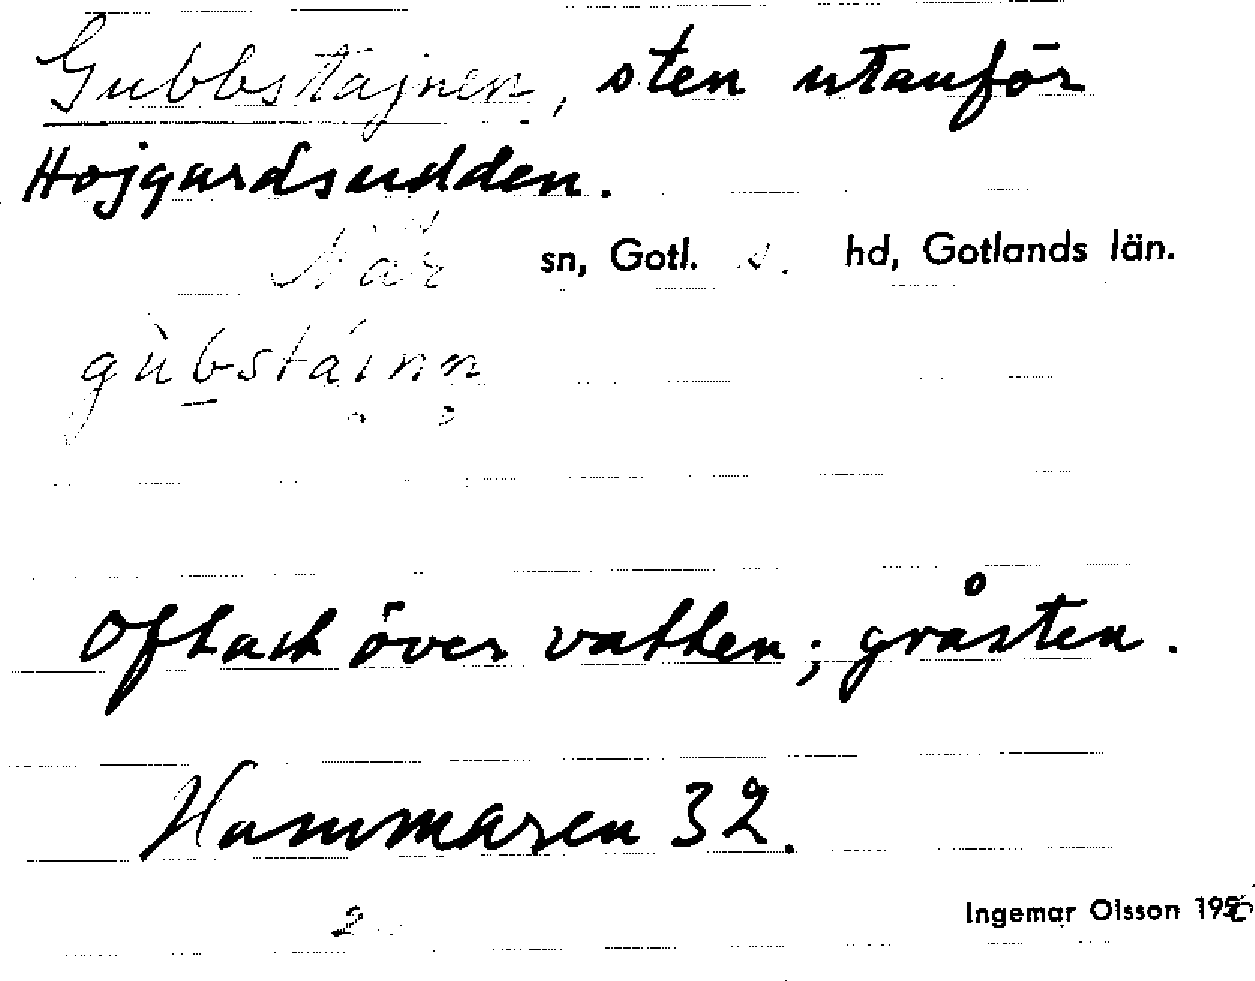 Gubbstajnen, sten utanför
Hojgardsudden.
När sn, Gotl. s. hd, Gotlands län.
gùbstáinn
Oftast över vatten; gråsten.
Hammaren 32.
2
Ingemar Olsson 195